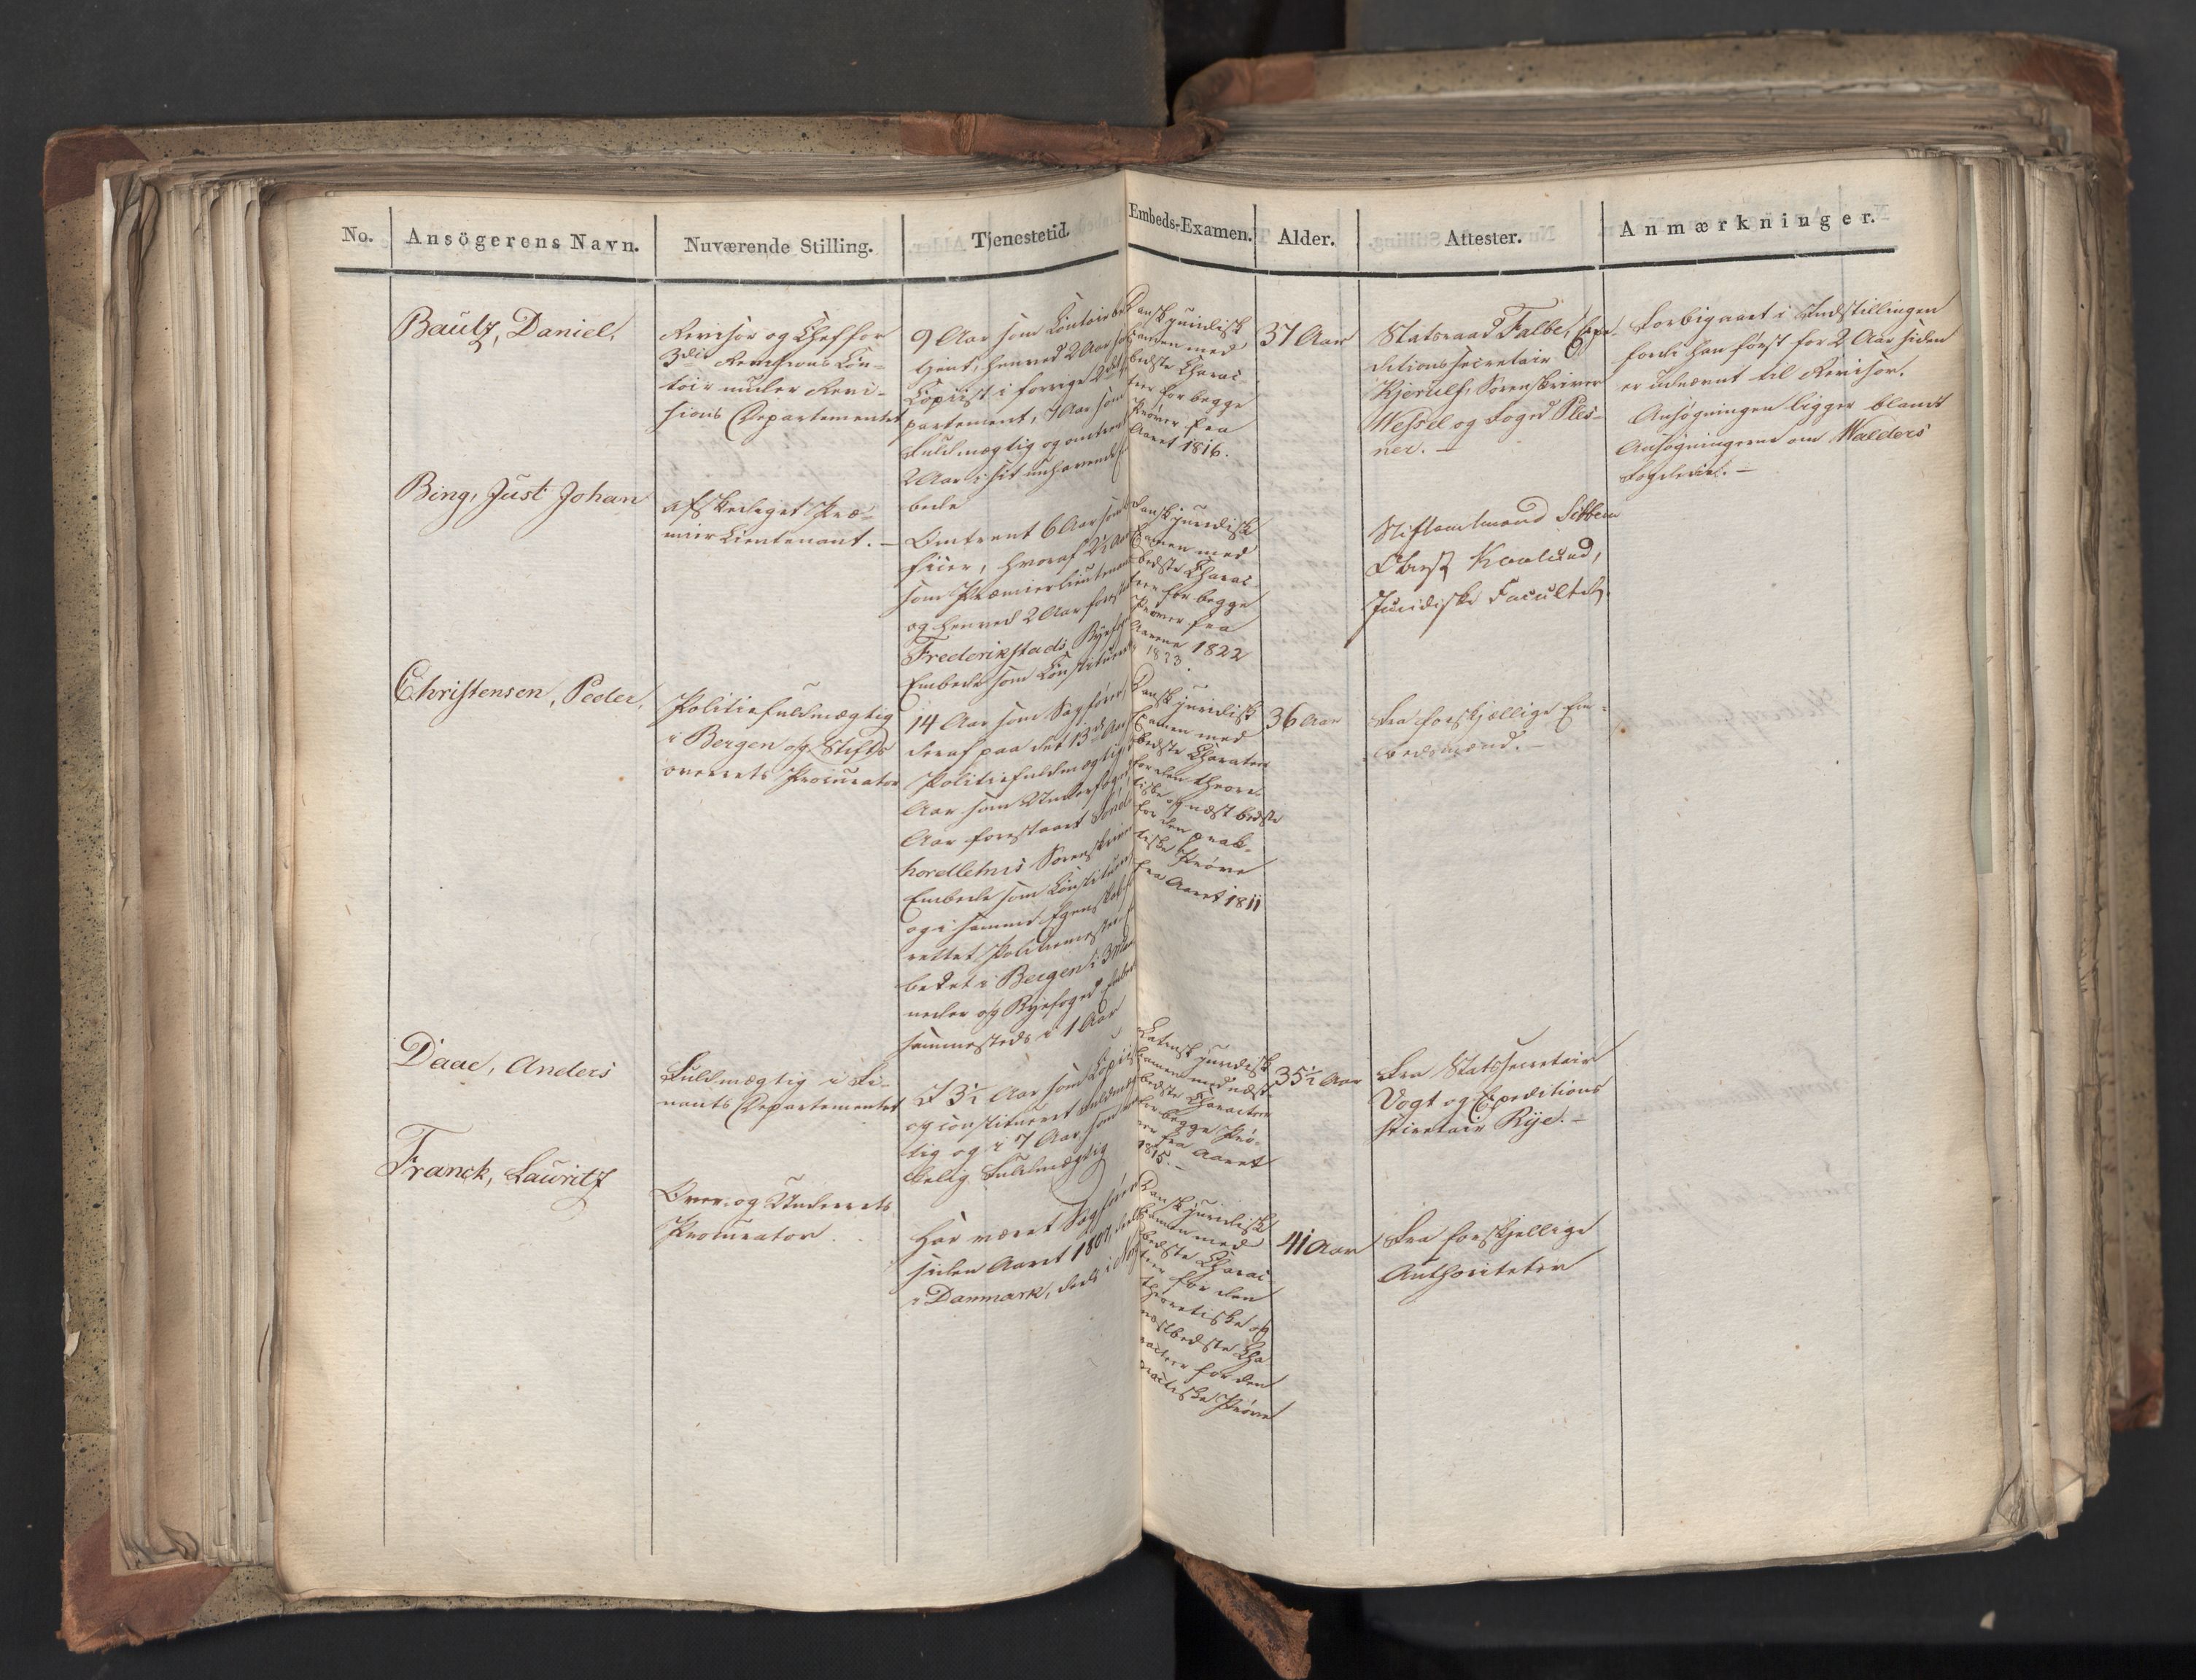 No.
Ansögerens Navn.
Nuværende Stilling.
Tjenestetid.
Embeds-Examen.
Alder.
Attester.
Anmærkninger.
Bautz, Daniel,
Revisor og Chef for
3die Revisions Con-
toir under Revi-
sions Departementet
9 Aar som Contoirbe-
tjent, henved 2 Aar som
Copiist i forrige 2det
partement, 7 Aar som
Fuldmægtig og omtrent
2 Aar i sit nuhavende
bede
Dansk juridisk
Examen med
bedste Charac-
teer for begge
Prøver fra
Aaret 1816.
37 Aar
Statsraad Falbe, Expe-
ditionssecretair
Kjerulf, Sorenskriver
Wessel og Foged Ples-
ner. –
Forbigaaet i Indstillingen
fordi han først for 2 Aar siden
er udnævnt til Revisor.
Ansøgningen ligger blandt
Ansøgningerne om Walders
Fogderie. –
Bing, Just Johan
afskediget Præ-
mier Lieutenant. –
Omtrent 6 Aar som
ficier, hvoraf 2½ Aar
som Præmierlieutenant
og henved 2 Aar forestaaet
Frederikstads Byefoged
Embede som Constitueret
Dansk juridisk
Examen med
bedste Charac-
teer for begge
Prøver fra
Aarene 1822
1823.
Stiftamtmand Sibbern
Oberst Kaalund,
Juridiske Facultet.
Christensen, Peder,
Politiefuldmægtig
i Bergen og Stifts
overrets Procurator
14 Aar som Sagfører,
deraf paa det 13de Aar
Politiefuldmægtig,
Aar som Underfoged
Aar forestaaet Sønd-
hordlehns Sorenskriver
Embede som Constitueret
og i samme Egenskab
rettet Politiemester
bedet i Bergen i 3 Maa
neder og Byefoged Embedet
sammesteds i 1 Aar
Dansk juridisk
Examen med
bedste Character
for den theore-
tiske og næst bedste
for den prak-
tiske Prøve
fra Aaret 1811
36 Aar
Fra forskjellige Em-
bedsmænd. –
Daae, Anders
Fuldmægtig i Fi-
nants Departementet
I 3½ Aar som Copiist
og constitueret Fuldmæg
tig og i 7 Aar som
kelig Fuldmægtig
Latinsk juridisk
Examen med næst-
bedste Character
for begge Prø-
ver fra Aaret
1815. –
35½ Aar
Fra Statssecretair
Vogt og Expeditions
secretair Rye. –
Franck, Lauritz
Over- og Underrets
Procurator.
Har været Sagfører
siden Aaret 1807 deels
i Danmark, deels i Nor
Dansk juridisk
Examen med
bedste Charac
teer for den
theoretiske og
næstbedste Cha
racteer for den
practiske Prøve
41 Aar
Fra forskjellige
Authoriteter